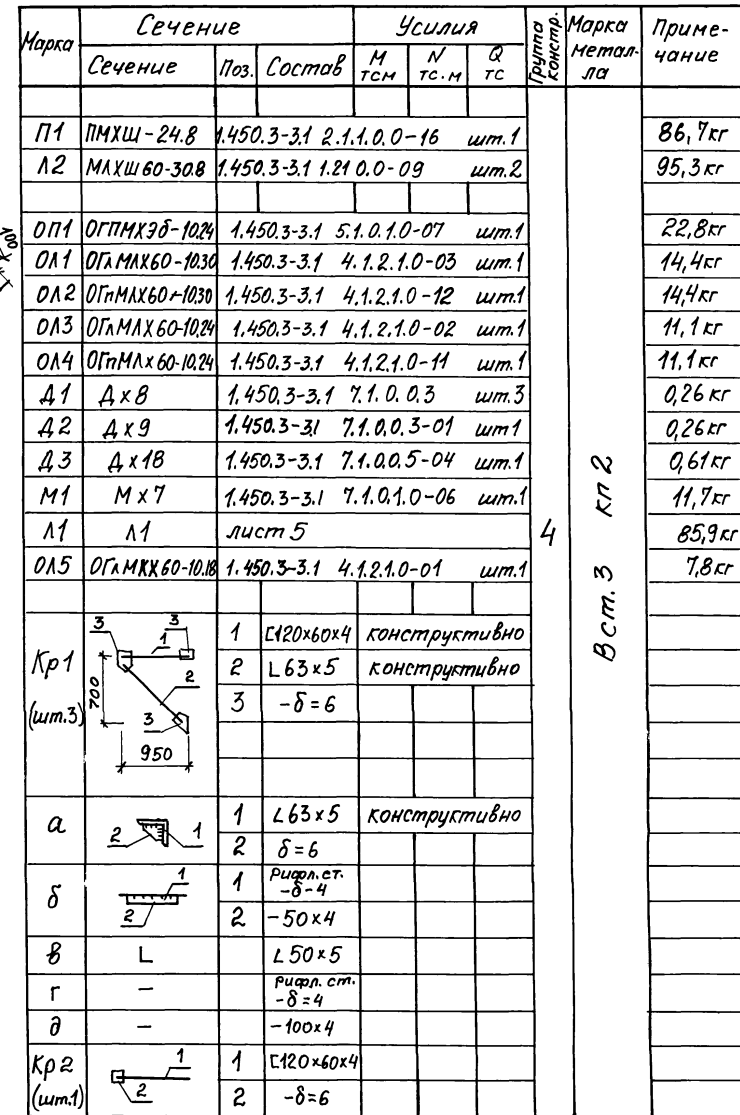 Марка Сечение Усилия Группа констр. Марка метал-ла Приме-чание
Сечение Поз. Состав М тсм N тс.м Q тс
П1 ПМХШ-24.8 1.450.3-3.1 2.1.1.0.0-16 шт.1 86,7кг
Л2 МЛХШ60-30.8 1.450.3-3.1 1.21 0.0-09 шт.2 95,3кг
100x4
ОП1 ОГПМХЭб-10.24 1.450.3-3.1 5.1.0.1.0-07 шт.1 22,8кг
ОЛ1 ОГлМЛХ60-10.30 1.450.3-3.1 4.1.2.1.0-03 шт.1 14,4кг
ОЛ2 ОГпМЛХ60-10.30 1.450.3-3.1 4.1.2.1.0-12 шт.1 14,4кг
ОЛ3 ОГлМЛХ60-10.24 1.450.3-3.1 4.1.2.1.0-02 шт.1 11,1кг
ОЛ4 ОГпМЛХ60-10.24 1.450.3-3.1 4.1.2.1.0-11 шт.1 11,1кг
Д1 Дх8 1.450.3-3.1 7.1.0.0.3 шт.3 0,26кг
Д2 Дх9 1.450.3-3.1 7.1.0.0.3-01 шт1 0,26кг
Д3 Дх18 1.450.3-3.1 7.1.0.0.5-04 шт.1 0,61кг
М1 Мх7 1.450.3-3.1 7.1.0.1.0-06 шт.1 11,7кг
Л1 Л1 лист 5 4 85,9кг
ОЛ5 ОГлМКХ60-10.18 1.450.3-3.1 4.1.2.1.0-01 шт.1 7,8кг
В ст. 3 кп 2
Кр1 (шт.3) 3 1 3 2 3 700 950
1 [120х60х4 конструктивно
2 L63х5 конструктивно
3 -δ=6
а 2 1 1 L63х5 конструктивно
2 δ=6
б 1 2 1 Рифл.ст. -δ-4
2 -50х4
в L L50х5
г - Рифл. ст. -δ=4
д - -100х4
Кр2 (шт.1) 1 2 1 [120х60х4
2 -δ=6